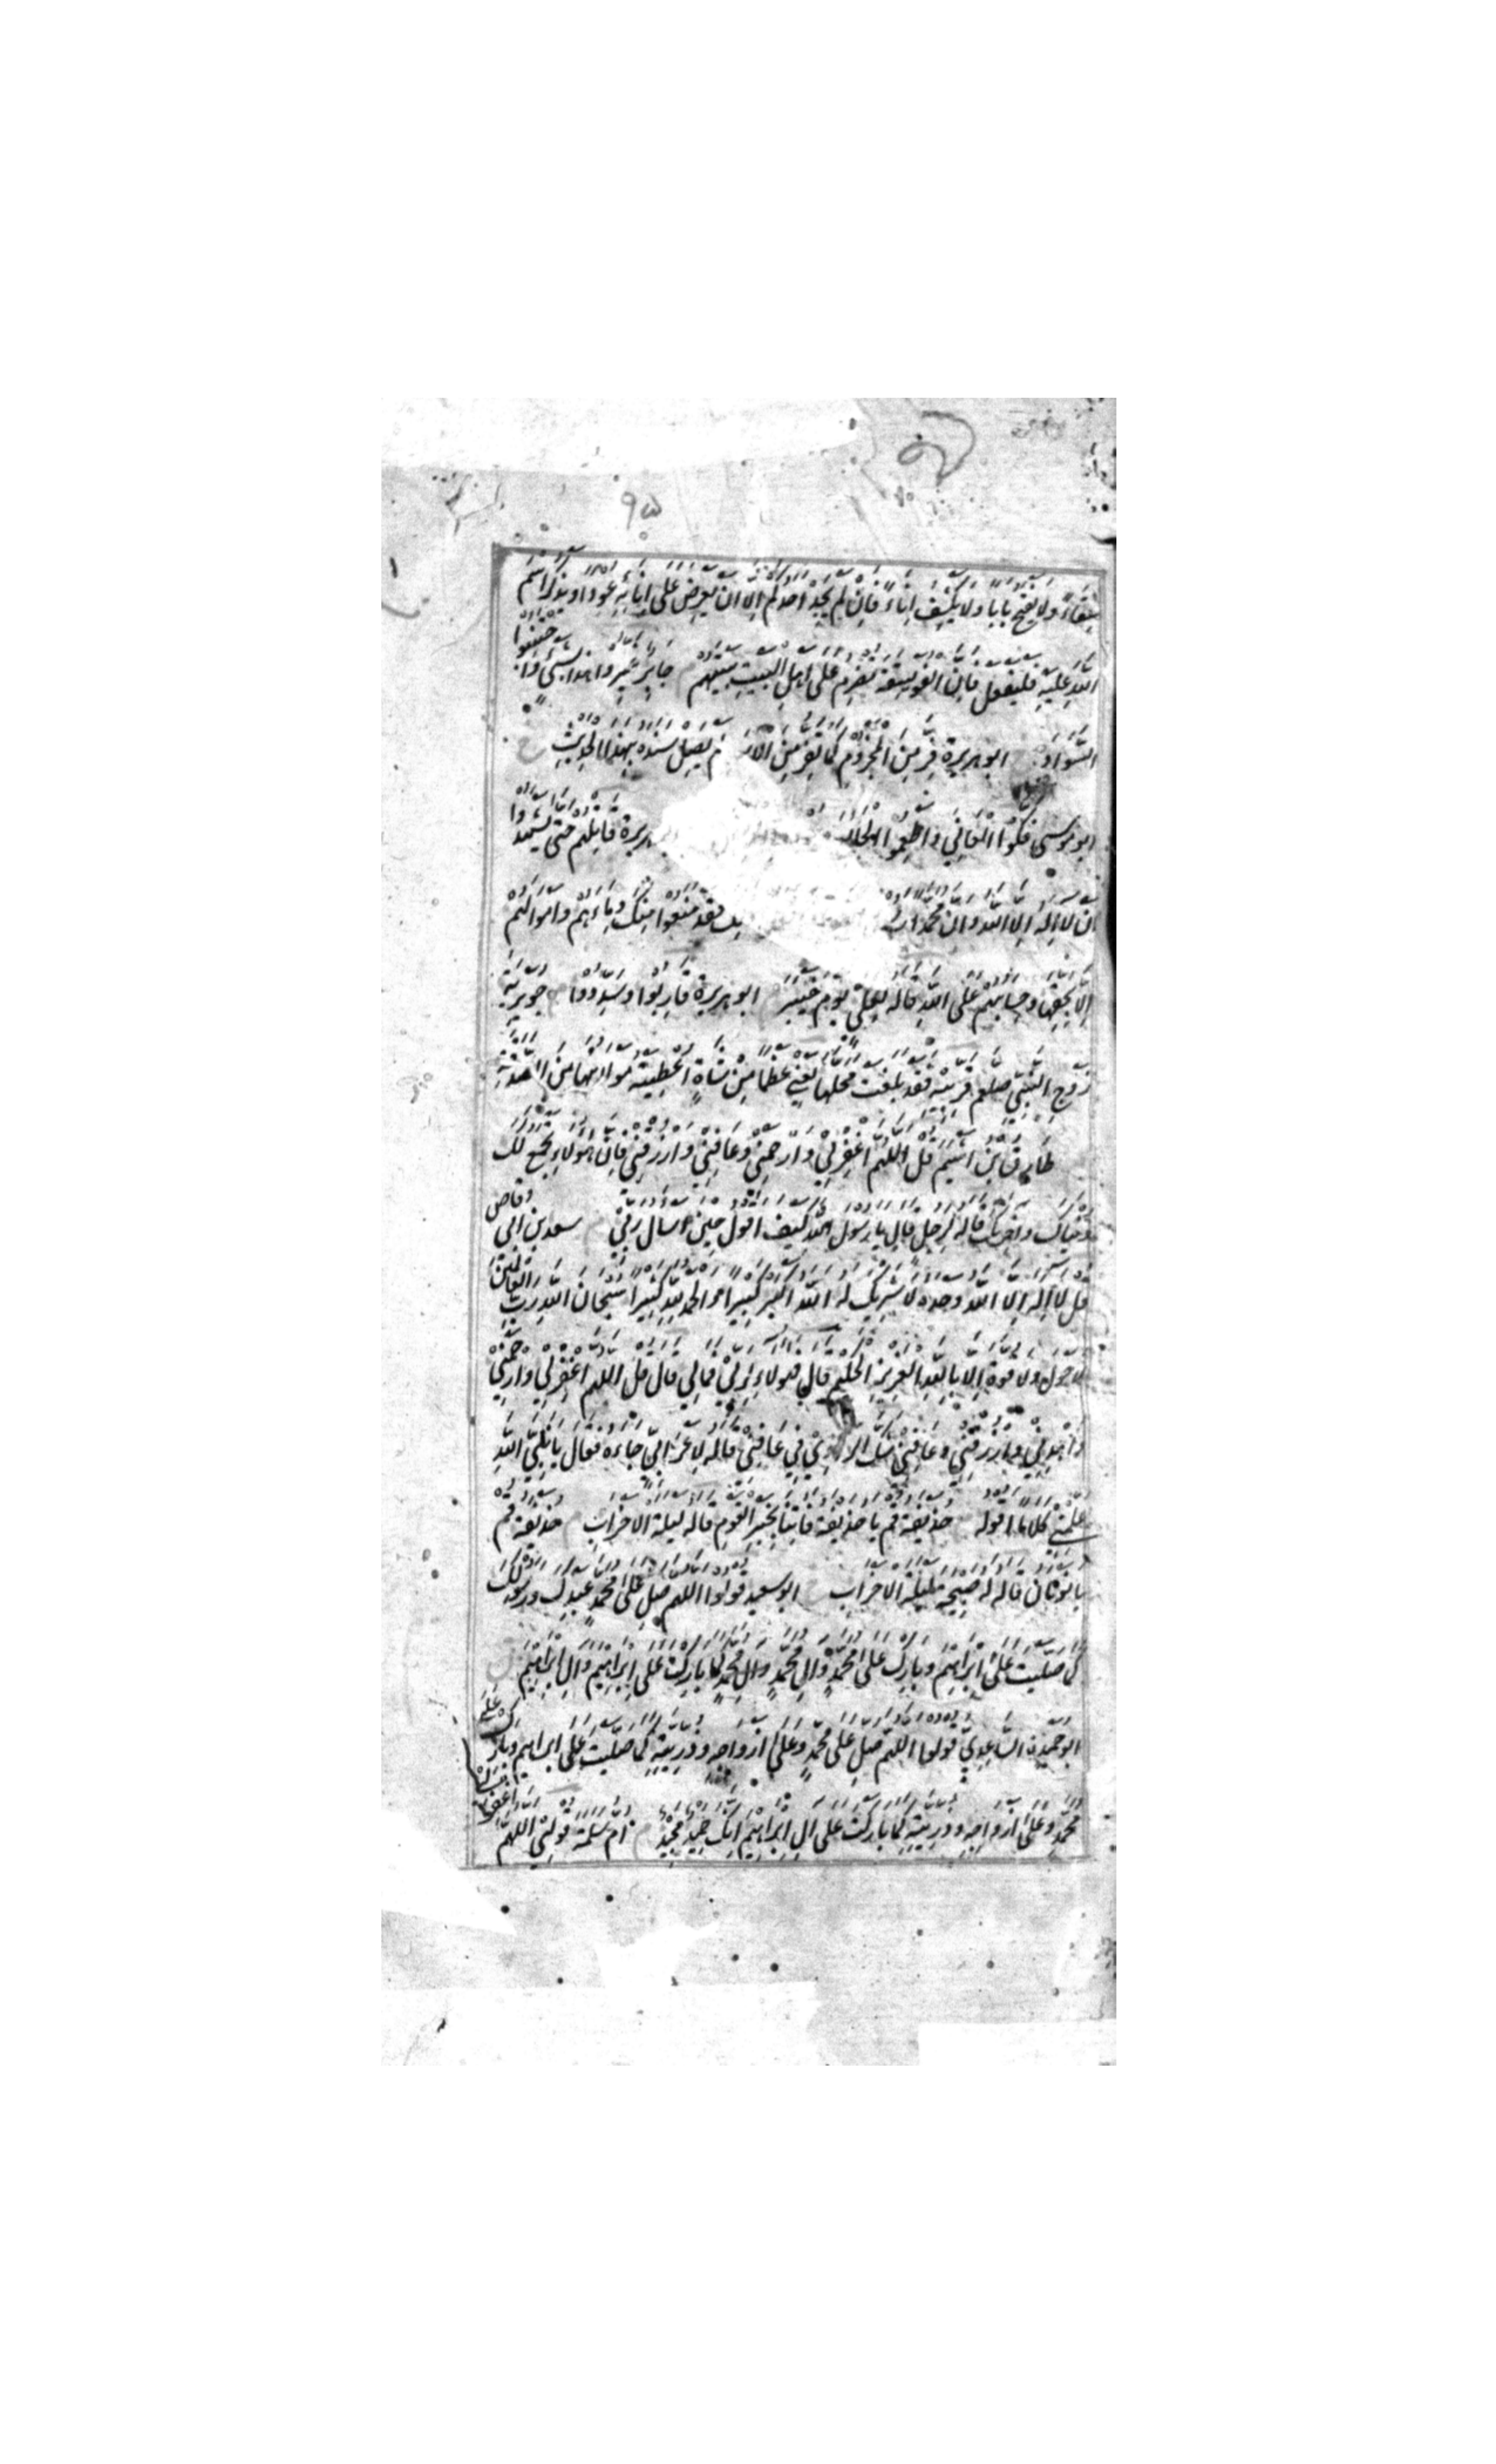 ٩٥
سِقَاءً وَلَا يَفْتَحُ بَابًا وَلَا يَكْشِفُ اِنَاءً فَاِنْ لَمْ يَجِدْ اَحَدُكُمْ اِلَّا اَنْ يَعْرِضَ عَلٰى اِنَائِهِ عُودًا وَيَذْكُرَ اسْمَ
اللّٰهِ عَلَيْهِ فَلْيَفْعَلْ فَاِنَّ الْفُوَيْسِقَةَ تُضْرِمُ عَلٰى اَهْلِ الْبَيْتِ بَيْتَهُمْ جابر غَيِّرُوا هٰذَا بِشَيْءٍ وَاجْتَنِبُوا
السَّوَادَ ابو هريرة فِرَّ مِنَ الْمَجْذُومِ كَمَا تَفِرُّ مِنَ الْاَسَدِ لَمْ يَصِلْ سَنَدُهُ بِهٰذَا الْحَدِيثِ خ
ابو موسى فُكُّوا الْعَانِيَ وَاَطْعِمُوا الْجَائِعَ هريرة قَاتِلْهُمْ حَتّٰى يَشْهَدُوا
اَنْ لَا اِلٰهَ اِلَّا اللّٰهُ وَاَنَّ مُحَمَّدًا فَقَدْ مَنَعُوا مِنْكَ دِمَاءَهُمْ وَاَمْوَالَهُمْ
اِلَّا بِحَقِّهَا وَحِسَابُهُمْ عَلَى اللّٰهِ قَالَهُ لِعَلِيٍّ يَوْمَ خَيْبَرَ ابو هريرة قَارِبُوا وَسَدِّدُوا جُوَيْرِيَةُ
زَوْجُ النَّبِيِّ صلعم قَرِّبِيهِ فَقَدْ بَلَغَتْ مَحِلَّهَا يَعْنِي عَظْمًا مِنْ شَاةٍ اُعْطِيَتْهُ مَوْلَاتُهَا مِنَ الصَّدَقَةِ
طَارِقُ بْنُ اَشْيَمَ قُلِ اللّٰهُمَّ اغْفِرْ لِي وَارْحَمْنِي وَعَافِنِي وَارْزُقْنِي فَاِنَّ هٰؤُلَاءِ تَجْمَعُ لَكَ
دُنْيَاكَ وَاٰخِرَتَكَ قَالَهُ لِرَجُلٍ قَالَ يَا رَسُولَ اللّٰهِ كَيْفَ اَقُولُ حِينَ اَسْاَلُ رَبِّي سعد بن ابي وقاص
قُلْ لَا اِلٰهَ اِلَّا اللّٰهُ وَحْدَهُ لَا شَرِيكَ لَهُ اللّٰهُ اَكْبَرُ كَبِيرًا وَالْحَمْدُ لِلّٰهِ كَثِيرًا سُبْحَانَ اللّٰهِ رَبِّ الْعَالَمِينَ
لَا حَوْلَ وَلَا قُوَّةَ اِلَّا بِاللّٰهِ الْعَزِيزِ الْحَكِيمِ قَالَ هٰؤُلَاءِ لِرَبِّي فَمَا لِي قَالَ قُلِ اللّٰهُمَّ اغْفِرْ لِي وَارْحَمْنِي
وَاهْدِنِي وَارْزُقْنِي وَعَافِنِي شَكَّ الرَّاوِي فِي عَافِنِي قَالَهُ لِاَعْرَابِيٍّ جَاءَهُ فَقَالَ يَا نَبِيَّ اللّٰهِ
عَلِّمْنِي كَلَامًا اَقُولُهُ حُذَيْفَةُ قُمْ يَا حُذَيْفَةُ فَاْتِنَا بِخَبَرِ الْقَوْمِ قَالَهُ لَيْلَةَ الْاَحْزَابِ حذيفة قُمْ
يَا نَوْمَانُ قَالَهُ لَهُ صَبِيحَةَ لَيْلَةِ الْاَحْزَابِ ابو سعيد قُولُوا اللّٰهُمَّ صَلِّ عَلٰى مُحَمَّدٍ عَبْدِكَ وَرَسُولِكَ
كَمَا صَلَّيْتَ عَلٰى اِبْرَاهِيمَ وَبَارِكْ عَلٰى مُحَمَّدٍ وَاٰلِ مُحَمَّدٍ كَمَا بَارَكْتَ عَلٰى اِبْرَاهِيمَ وَاٰلِ اِبْرَاهِيمَ
ابو حُمَيْدٍ السَّاعِدِيُّ قُولُوا اللّٰهُمَّ صَلِّ عَلٰى مُحَمَّدٍ وَعَلٰى اَزْوَاجِهِ وَذُرِّيَّتِهِ كَمَا صَلَّيْتَ عَلٰى اِبْرَاهِيمَ وَبَارِكْ عَلٰى
مُحَمَّدٍ وَعَلٰى اَزْوَاجِهِ وَذُرِّيَّتِهِ كَمَا بَارَكْتَ عَلٰى اٰلِ اِبْرَاهِيمَ اِنَّكَ حَمِيدٌ مَجِيدٌ م اُمُّ سَلَمَةَ قُولِي اللّٰهُمَّ اغْفِرْ